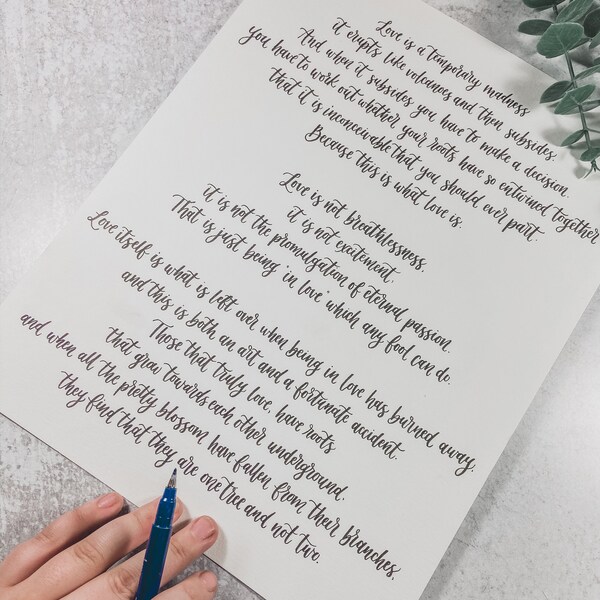 Love is a temporary madness
it erupts like volcanoes and then subsides.
And when it subsides you have to make a decision.
You have to work out whether your roots have so entwined together
that it is inconceivable that you should ever part.
Because this is what love is.
Love is not breathlessness,
it is not excitement,
it is not the promulgation of eternal passion.
That is just being "in love" which any fool can do.
Love itself is what is left over when being in love has burned away,
and this is both an art and a fortunate accident.
Those that truly love, have roots
that grow towards each other underground,
and when all the pretty blossom have fallen from their branches,
they find that they are one tree and not two.